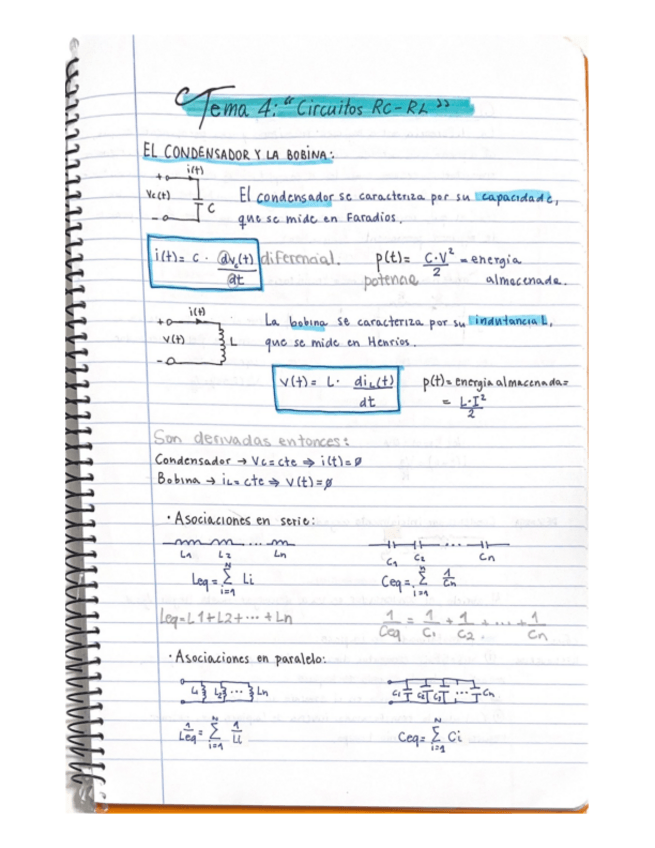 Tema 4: "Circuitos RC-RL"
EL CONDENSADOR Y LA BOBINA:
+ i(t)
Vc(t) C
-
El condensador se caracteriza por su capacidade,
que se mide en Faradios.
i(t) = C · dvc(t)/dt diferencial. p(t) = C·V²/2 = energía
potencia almacenada.
+ i(t)
V(t) L
-
La bobina se caracteriza por su indutancia L,
que se mide en Henrios.
v(t) = L · diL(t)/dt p(t) = energía almacenada =
= L·I²/2
Son derivadas entonces:
Condensador → Vc = cte ⇒ i(t) = ∅
Bobina → iL = cte ⇒ v(t) = ∅
· Asociaciones en serie:
L1 L2 ... Ln C1 C2 ... Cn
Leq = Σ(i=1, N) Li Ceq = Σ(i=1, n) 1/Cn
Leq = L1 + L2 + ... + Ln 1/Ceq = 1/C1 + 1/C2 + ... + 1/Cn
· Asociaciones en paralelo:
L1 L2 ... Ln C1 C2 C3 ... Cn
1/Leq = Σ(i=1, N) 1/Li Ceq = Σ(i=1, N) Ci